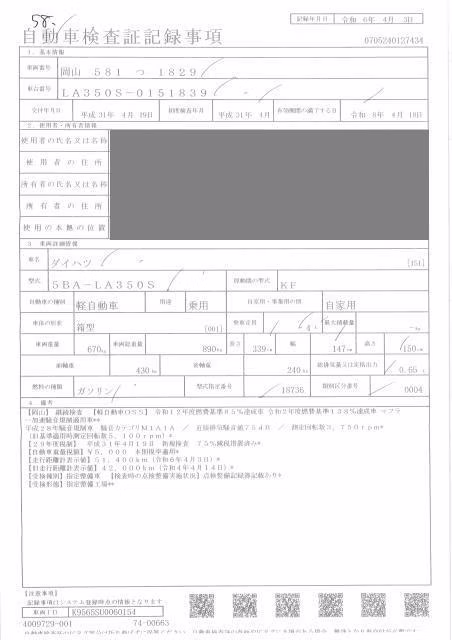 58.
記録年月日 令和 6年 4月 3日
自動車検査証記録事項
0705240127434
1. 基本情報
車両番号 岡山 581 つ 1829
車台番号 LA350S-0151839
交付年月日 平成31年 4月 19日 初度検査年月 平成31年 4月 有効期間の満了する日 令和 8年 4月 18日
2. 使用者・所有者情報
使用者の氏名又は名称
使用者の住所
所有者の氏名又は名称
所有者の住所
使用の本拠の位置
3. 車両詳細情報
車名 ダイハツ [151]
型式 5BA-LA350S 原動機の型式 KF
自動車の種別 軽自動車 用途 乗用 自家用・事業用の別 自家用
車体の形状 箱型 [001] 乗車定員 4人 最大積載量 -kg
車両重量 670kg 車両総重量 890kg 長さ 339cm 幅 147cm 高さ 150cm
前軸重 430kg 後軸重 240kg 総排気量又は定格出力 0.65 L
燃料の種類 ガソリン 型式指定番号 18736 類別区分番号 0004
4. 備考
【岡山】 継続検査 【軽自動車OSS】 令和12年度燃費基準85%達成車 令和2年度燃費基準138%達成車 マフラ
ー加速騒音規制適用車**
平成28年騒音規制車 騒音カテゴリM1A1A / 近接排気騒音値75dB / 測定回転数3,750rpm*
(旧基準適用時測定回転数5,100rpm)*
【29年度税制】 平成31年4月19日 新規検査 75%減税措置済み*
【自動車重量税額】¥5,000 本則税率適用*
【走行距離計表示値】51,400km(令和6年4月3日)*
【旧走行距離計表示値】42,000km(令和4年4月14日)*
【受検種別】指定整備車 【検査時の点検整備実施状況】点検整備記録簿記載あり*
【受検形態】指定整備工場**
【注意事項】
記録事項はシステム登録時点の情報となります
車両ID K9565SU0060154
4009729-001 74-00663